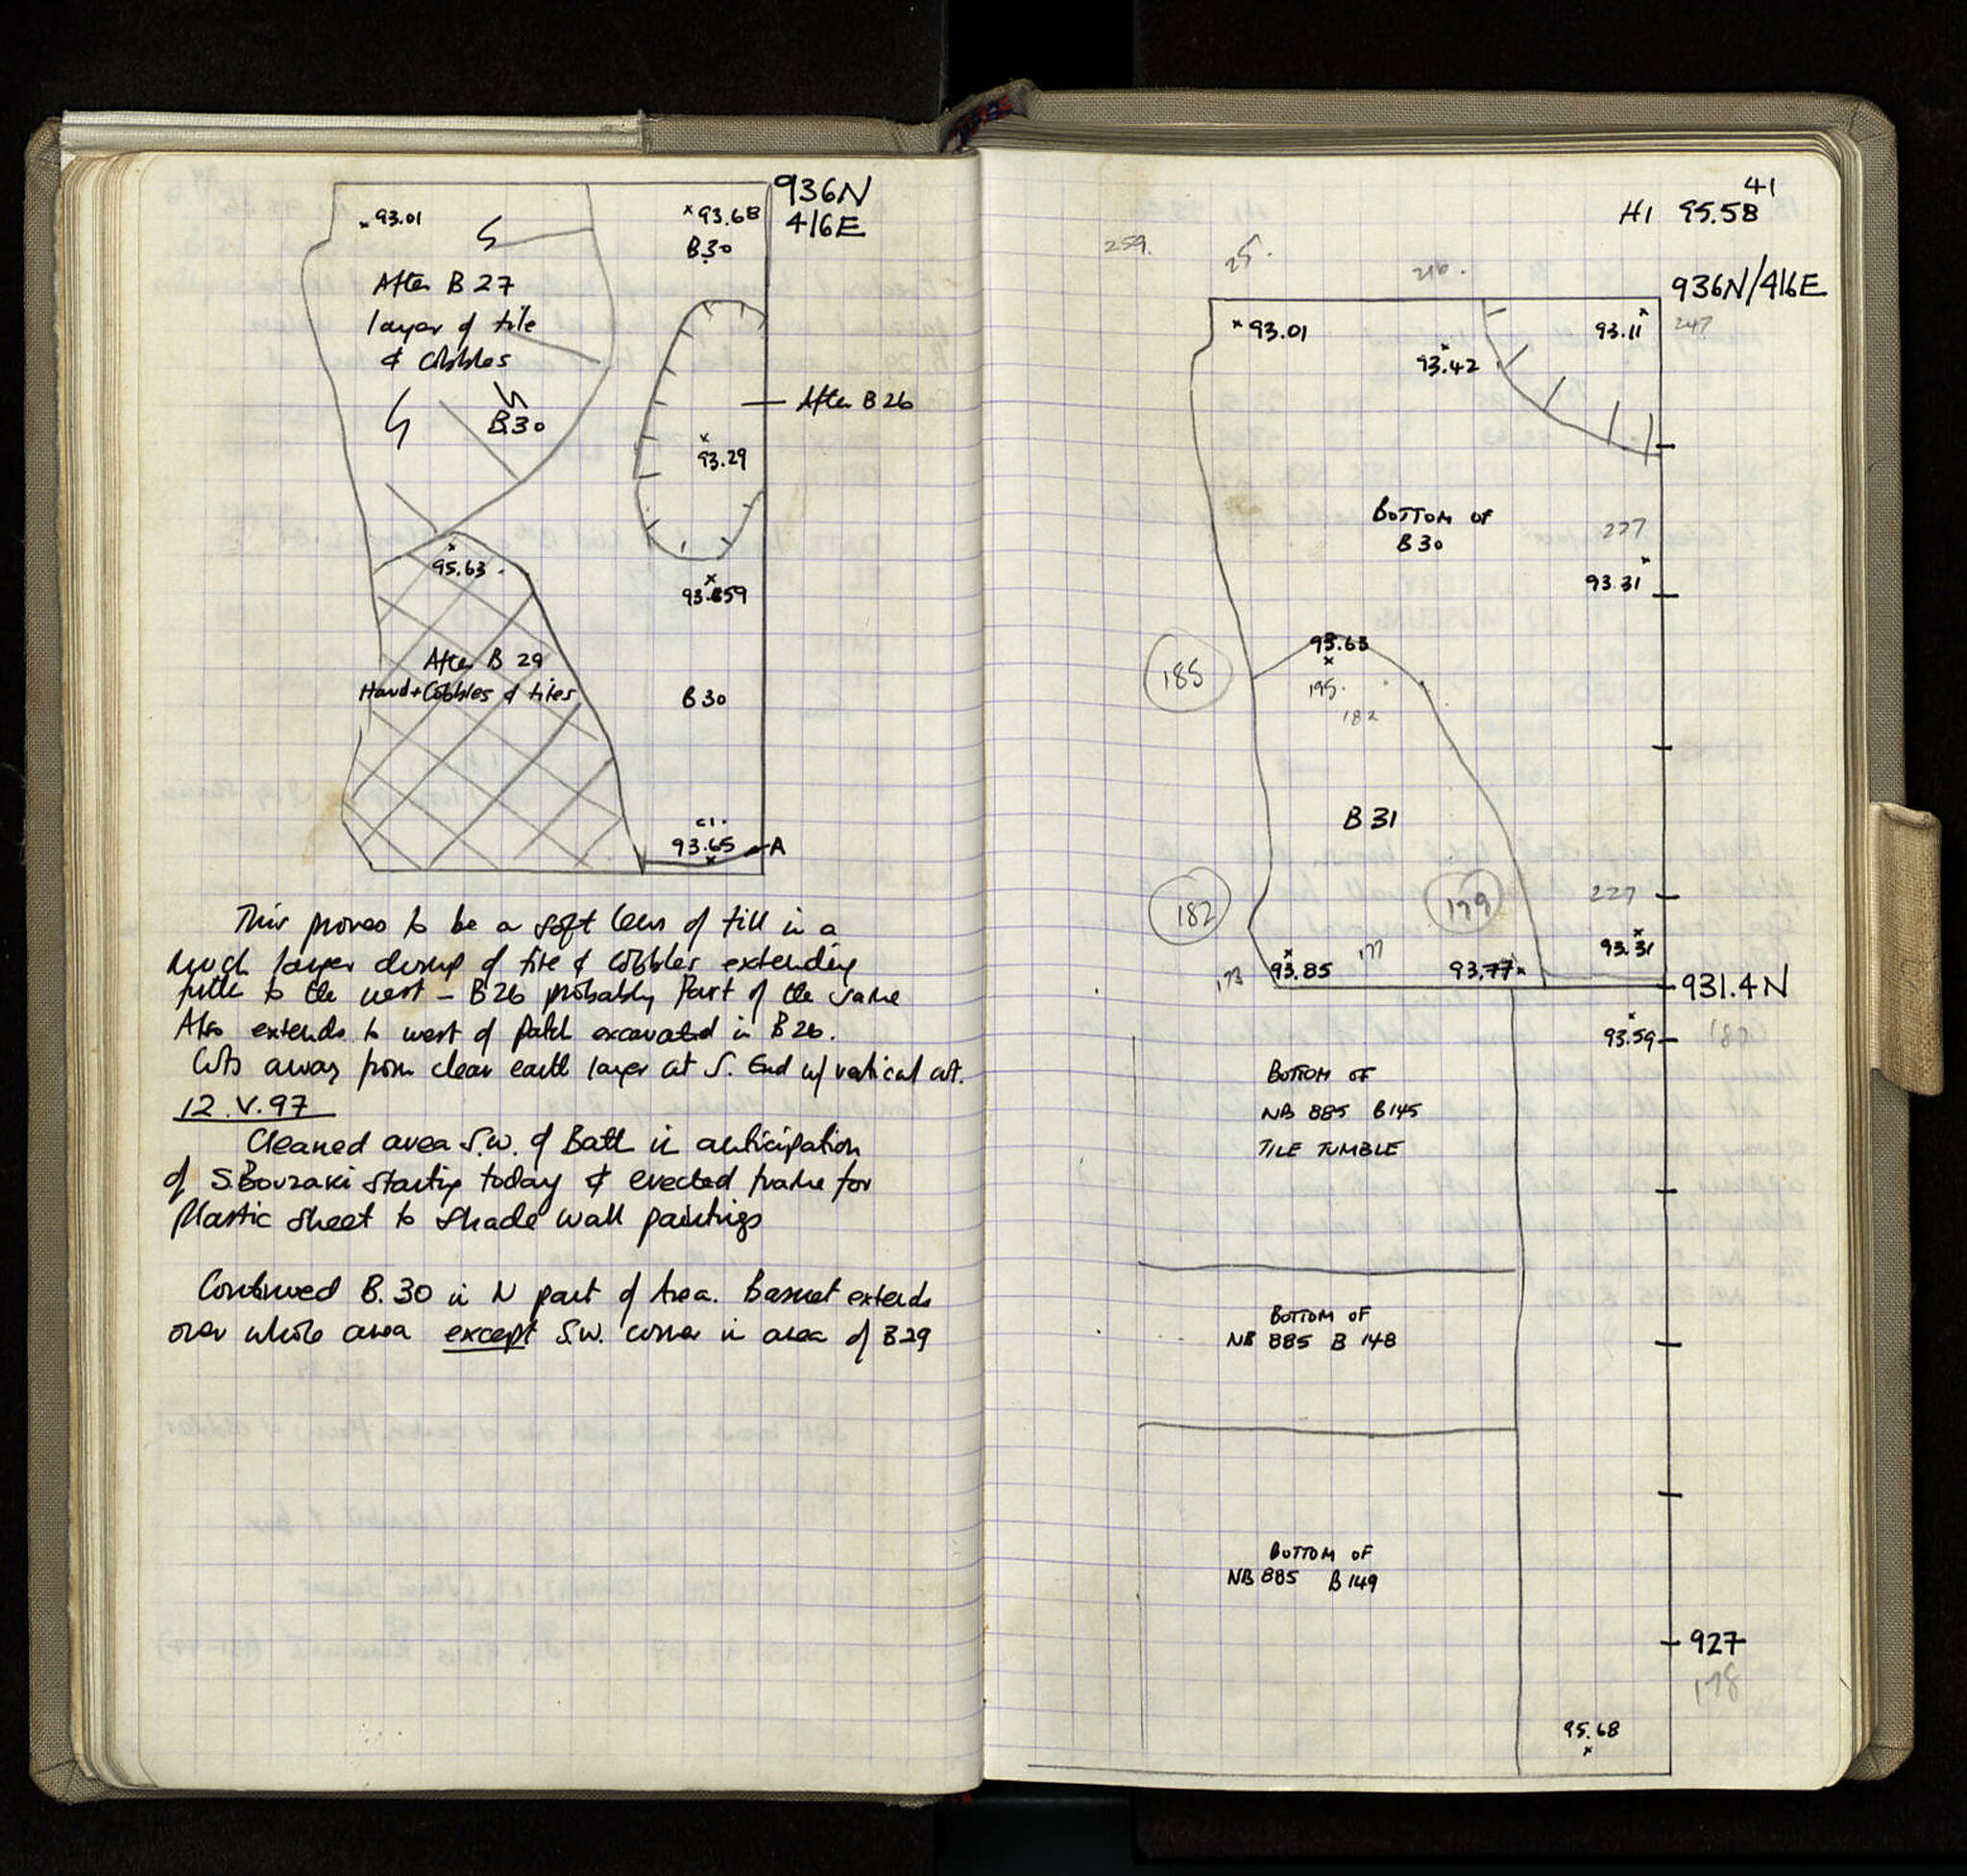 936N
416E
93.01
93.68
B30
After B 27
layer of tile
& cobbles
B30
After B 26
93.29
95.63
93.59
After B 29
Hard + Cobbles & tiles
B 30
c1.
93.65
A
This proves to be a soft lens of fill in a
much larger dump of tile & cobbles extending
to the west – B26 probably Part of the same
Also extends to west of patch excavated in B26.
Cuts away from clear earth layer at S. End w/ vertical cut.
12.V.97
Cleaned area S.W. of Bath in anticipation
of S.Bouzaki starting today & erected frame for
Plastic sheet to shade wall paintings
Continued B.30 in N part of Area. Basket extends
over whole area except S.W. corner in area of B29
41
H1 95.58
259.
25.
216.
936N/416E
93.01
93.11
247
93.42
BOTTOM OF
B30
227
93.31
93.63
185
195.
182
B 31
182
179
227
93.31
93.85
177
93.77
173
931.4N
93.59
BOTTOM OF
NB 885 B145
TILE TUMBLE
BOTTOM OF
NB 885 B 148
BOTTOM OF
NB 885 B 149
927
178
95.68